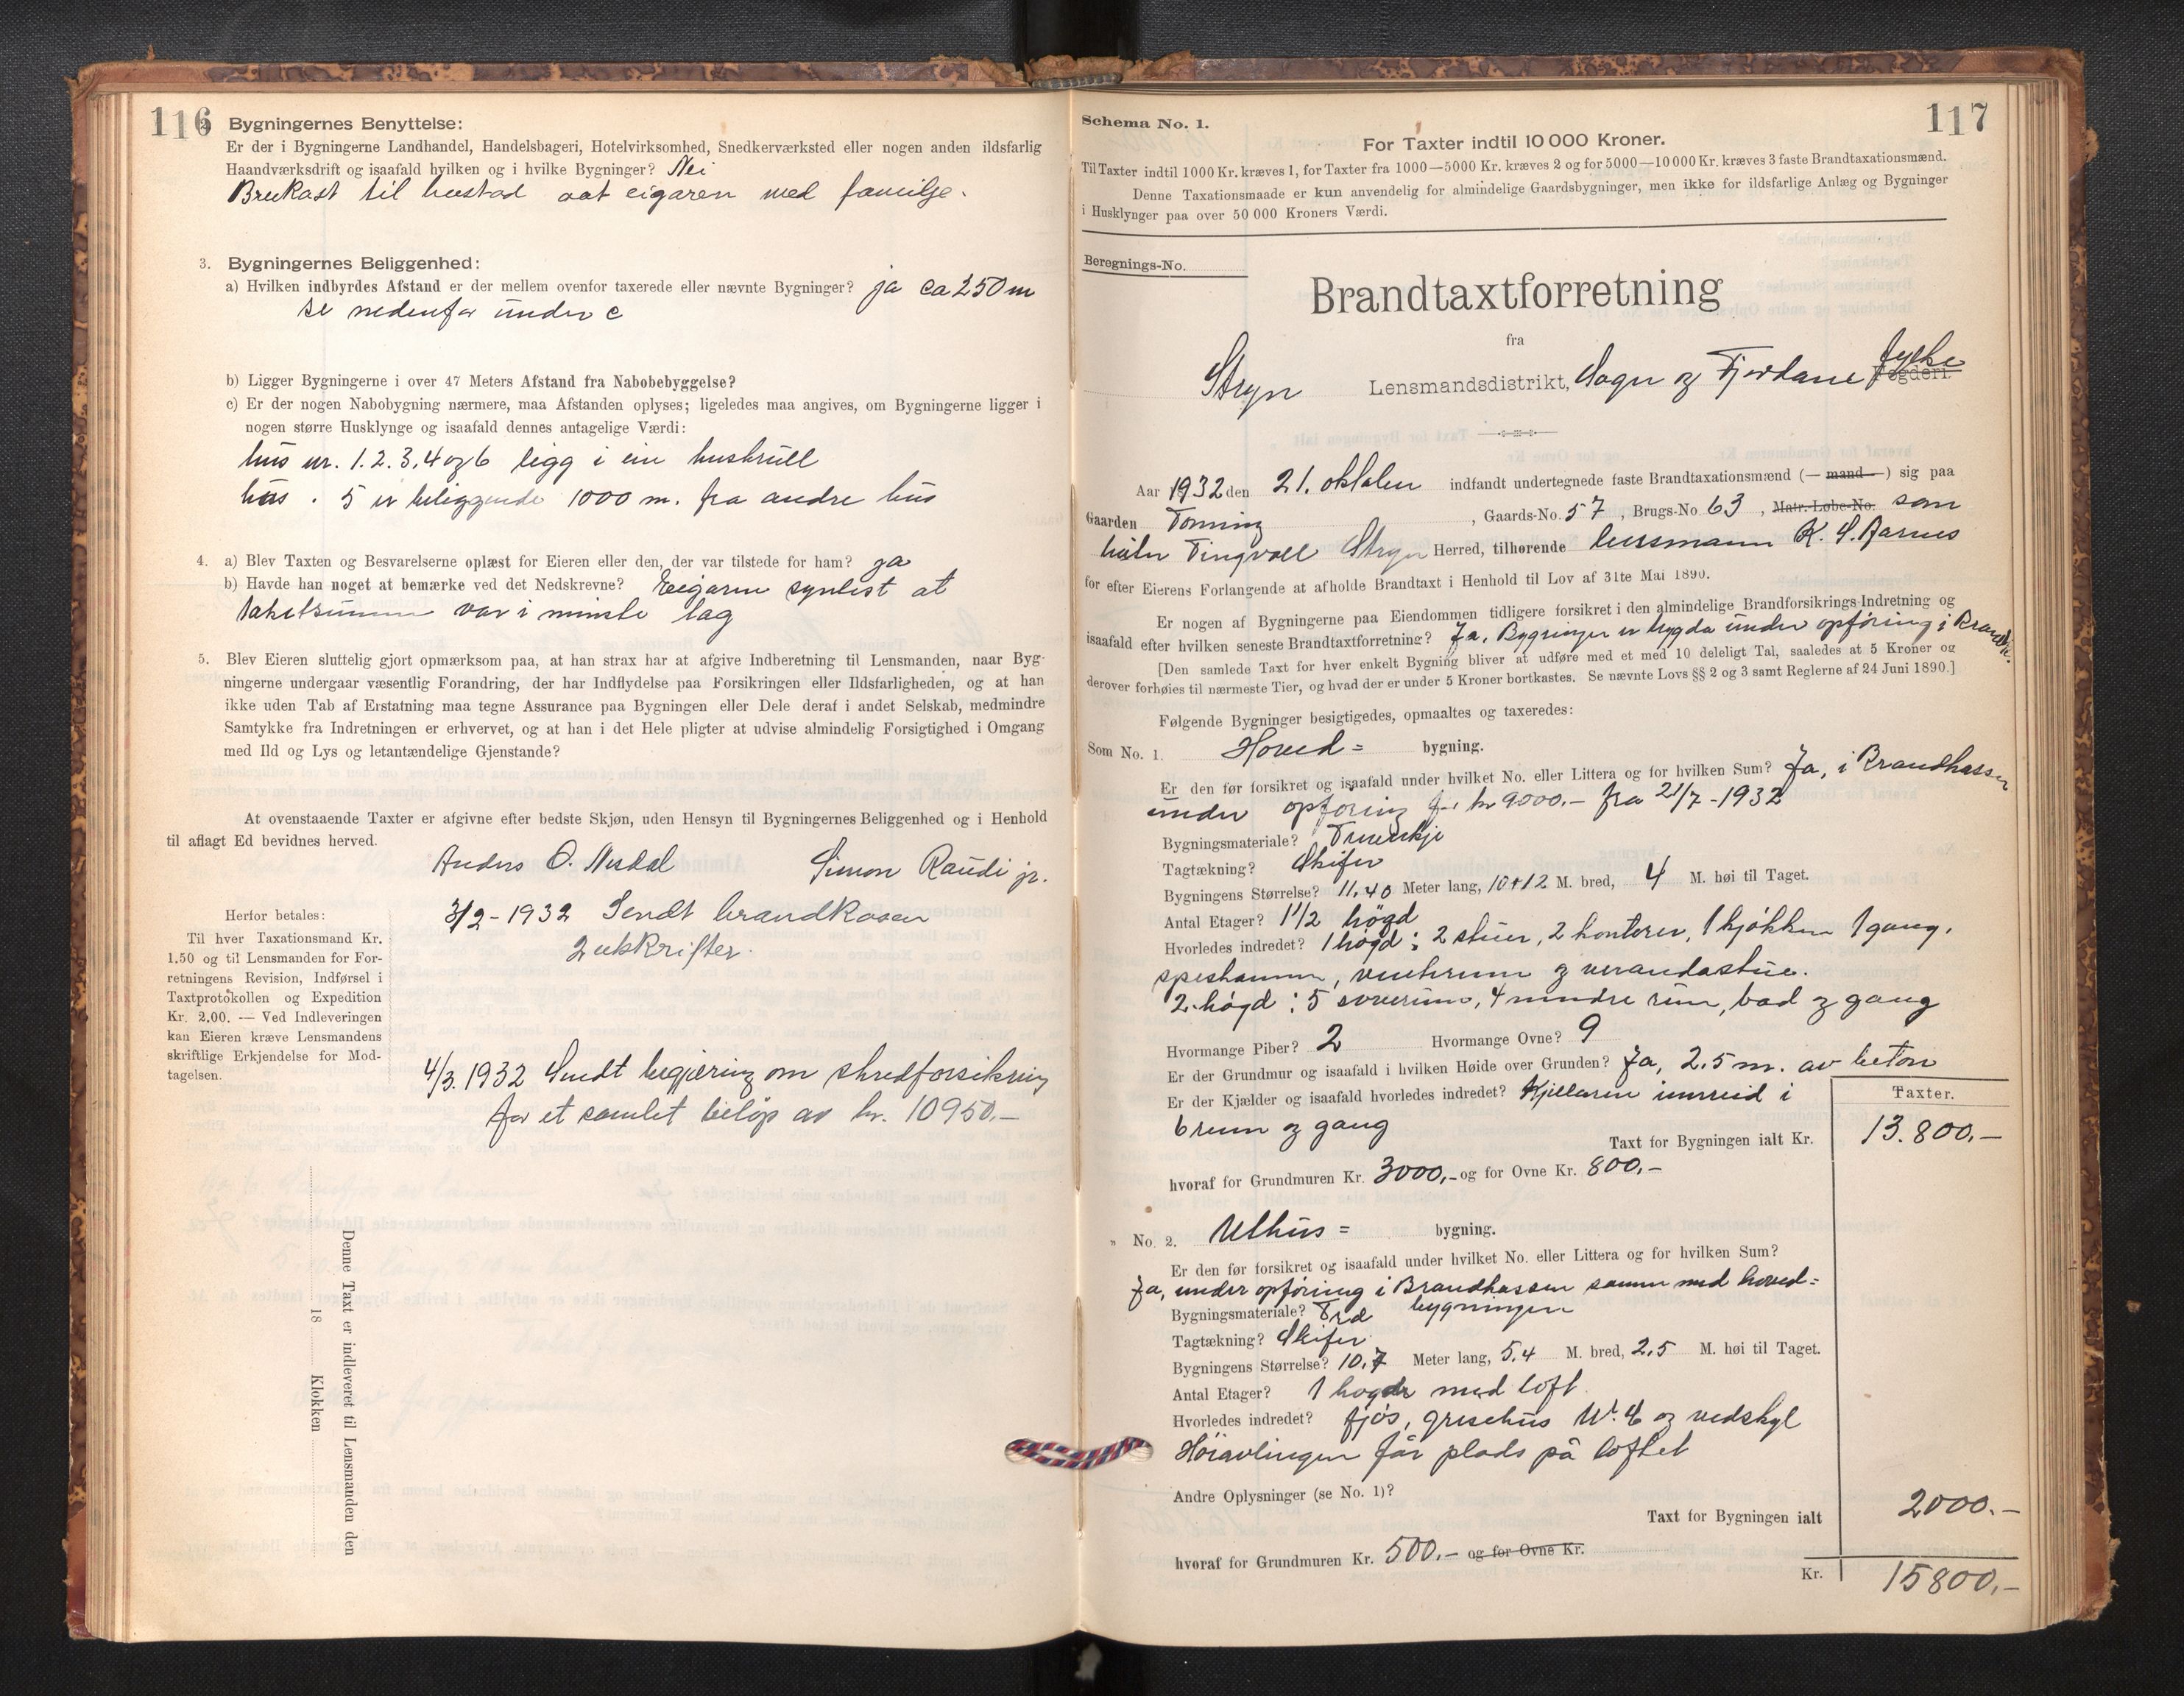 116
2. Bygningernes Benyttelse:
Er der i Bygningerne Landhandel, Handelsbageri, Hotelvirksomhed, Snedkerværksted eller nogen anden ildsfarlig
Haandværksdrift og isaafald hvilken og i hvilke Bygninger? Nei
Brukast til bustad aat eigaren med familje.
3. Bygningernes Beliggenhed:
a) Hvilken indbyrdes Afstand er der mellem ovenfor taxerede eller nævnte Bygninger? ja ca 250 m
se nedenfor under c
b) Ligger Bygningerne i over 47 Meters Afstand fra Nabobebyggelse?
c) Er der nogen Nabobygning nærmere, maa Afstanden oplyses; ligeledes maa angives, om Bygningerne ligger i
nogen større Husklynge og isaafald dennes antagelige Værdi:
hus nr. 1. 2. 3, 4 og 6 ligg i ein huskrull
hus . 5 er beliggende 1000 m. fra andre hus
4. a) Blev Taxten og Besvarelserne oplæst for Eieren eller den, der var tilstede for ham? ja
b) Havde han noget at bemærke ved det Nedskrevne? Eigaren syntest at
takstsummen var i minste lag
5. Blev Eieren sluttelig gjort opmærksom paa, at han strax har at afgive Indberetning til Lensmanden, naar Byg-
ningerne undergaar væsentlig Forandring, der har Indflydelse paa Forsikringen eller Ildsfarligheden, og at han
ikke uden Tab af Erstatning maa tegne Assurance paa Bygningen eller Dele deraf i andet Selskab, medmindre
Samtykke fra Indretningen er erhvervet, og at han i det Hele pligter at udvise almindelig Forsigtighed i Omgang
med Ild og Lys og letantændelige Gjenstande?
At ovenstaaende Taxter er afgivne efter bedste Skjøn, uden Hensyn til Bygningernes Beliggenhed og i Henhold
til aflagt Ed bevidnes herved.
Anders O. Nesdal Simon Raudi jr.
3/2 - 1932 Sendt brandkassen
2 utskrifter.
Herfor betales:
Til hver Taxationsmand Kr.
1.50 og til Lensmanden for For-
retningens Revision, Indførsel i
Taxtprotokollen og Expedition
Kr. 2,00. — Ved Indleveringen
kan Eieren kræve Lensmandens
skriftlige Erkjendelse for Mod-
tagelsen.
4/3. 1932 Sendt begjæring om skredforsikring
for et samlet beløp av kr. 10950.—
Denne Taxt er indleveret til Lensmanden den
18 Klokken
117
Schema No. 1.
For Taxter indtil 10 000 Kroner.
Til Taxter indtil 1000 Kr. kræves 1, for Taxter fra 1000—5000 Kr. kræves 2 og for 5000—10 000 Kr. kræves 3 faste Brandtaxationsmænd.
Denne Taxationsmaade er kun anvendelig for almindelige Gaardsbygninger, men ikke for ildsfarlige Anlæg og Bygninger
i Husklynger paa over 50 000 Kroners Værdi.
Beregnings-No.
Brandtaxtforretning
fra
Stryn Lensmandsdistrikt, Sogn og Fjordane fylke Fogderi.
Aar 1932 den 21. oktober indfandt undertegnede faste Brandtaxationsmænd (— mand —) sig paa
Gaarden Tonning, Gaards-No. 57, Brugs-No. 63, Matr.-Løbe-No. som
heiter Tingvoll Stryn Herred, tilhørende lensmann K. S. Aarnes
for efter Eierens Forlangende at afholde Brandtaxt i Henhold til Lov af 31te Mai 1890.
Er nogen af Bygningerne paa Eiendommen tidligere forsikret i den almindelige Brandforsikrings-Indretning og
isaafald efter hvilken seneste Brandtaxtforretning? Ja, Bygninger er trygda under opføring i Brandk.
[Den samlede Taxt for hver enkelt Bygning bliver at udføre med et med 10 deleligt Tal, saaledes at 5 Kroner og
derover forhøies til nærmeste Tier, og hvad der er under 5 Kroner bortkastes. Se nævnte Lovs §§ 2 og 3 samt Reglerne af 24 Juni 1890.]
Følgende Bygninger besigtigedes, opmaaltes og taxeredes:
Som No. 1. Hoved= bygning.
Er den før forsikret og isaafald under hvilket No. eller Littera og for hvilken Sum? Ja, i Brandkassen
under opføring for kr 9000.— fra 21/7 - 1932
Bygningsmateriale? Treverkje
Tagtækning? Skifer
Bygningens Størrelse? 11,40 Meter lang, 10+12 M. bred, 4 M. høi til Taget.
Antal Etager? 1 1/2 høgd
Hvorledes indredet? 1 høgd: 2 stuer, 2 kontorer, 1 kjøkken 1 gang,
speskammer, venterum og verandastue.
2. høgd: 5 soverum, 4 mindre rum, bad og gang
Hvormange Piber? 2 Hvormange Ovne? 9
Er der Grundmur og isaafald i hvilken Høide over Grunden? Ja, 2,5 m. av beton
Er der Kjælder og isaafald hvorledes indredet? Kjellaren innreid i
6 rum og gang
Taxter.
Taxt for Bygningen ialt Kr. 13.800,—
hvoraf for Grundmuren Kr. 3000,— og for Ovne Kr. 800,—
„ No. 2. Uthus= bygning.
Er den før forsikret og isaafald under hvilket No. eller Littera og for hvilken Sum?
Ja, under opføring i Brandkassen saman med hoved=
bygningen
Bygningsmateriale? Tre
Tagtækning? Skifer
Bygningens Størrelse? 10,7 Meter lang, 5,4 M. bred, 2,5 M. høi til Taget.
Antal Etager? 1 høgde med loft
Hvorledes indredet? fjøs, grisehus W.C og vedskyl
Høiavlingen får plads på loftet
Andre Oplysninger (se No. 1)?
Taxt for Bygningen ialt 2000.—
hvoraf for Grundmuren Kr. 500.— og for Ovne Kr.
Kr. 15800,—